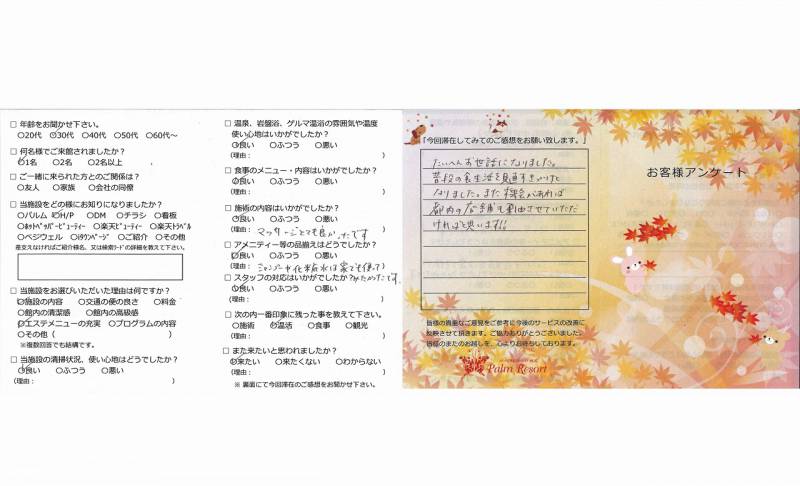 □ 年齢をお聞かせ下さい。
○20代 ○30代 ○40代 ○50代 ○60代～
□ 何名様でご来館されましたか？
○1名 ○2名 ○2名以上
□ ご一緒に来られた方とのご関係は？
○友人 ○家族 ○会社の同僚
□ 当施設をどの様にお知りになりましたか？
○パルム ○H/P ○DM ○チラシ ○看板
○ホットペッパービューティー ○楽天ビューティー ○楽天トラベル
○ベジウェル ○iタウンページ ○ご紹介 ○その他
差支えなければご紹介様名、又は検索ワードの詳細を教えて下さい。
□ 当施設をお選びいただいた理由は何ですか？
○施設の内容 ○交通の便の良さ ○料金
○館内の清潔感 ○館内の高級感
○エステメニューの充実 ○プログラムの内容
○その他 ( )
※複数回答でも結構です。
□ 当施設の清掃状況、使い心地はどうでしたか？
○良い ○ふつう ○悪い
(理由： )
□ 温泉、岩盤浴、ゲルマ温浴の雰囲気や温度
使い心地はいかがでしたか？
○良い ○ふつう ○悪い
(理由： )
□ 食事のメニュー・内容はいかがでしたか？
○良い ○ふつう ○悪い
(理由： )
□ 施術の内容はいかがでしたか？
○良い ○ふつう ○悪い
(理由： マッサージとても良かったです )
□ アメニティー等の品揃えはどうでしたか？
○良い ○ふつう ○悪い
(理由： シャンプーや化粧水は家でも使って)
みたかったです。
□ スタッフの対応はいかがでしたか？
○良い ○ふつう ○悪い
(理由： )
□ 次の内一番印象に残った事を教えて下さい。
○施術 ○温活 ○食事 ○観光
(理由： )
□ また来たいと思われましたか？
○来たい ○来たくない ○わからない
(理由： )
※ 裏面にて今回滞在のご感想をお聞かせ下さい。
「今回滞在してみてのご感想をお願い致します。」
たいへんお世話になりました。
普段の食生活を見直すきっかけと
なりました。また機会があれば
都内の店舗も利用させていただ
ければと思います!!
皆様の貴重なご意見をご参考に今後のサービスの改善に
反映させて頂きます。ご協力ありがとうございました。
皆様のまたのお越しを、心よりお待ちしております。
Palm Resort
お客様アンケート